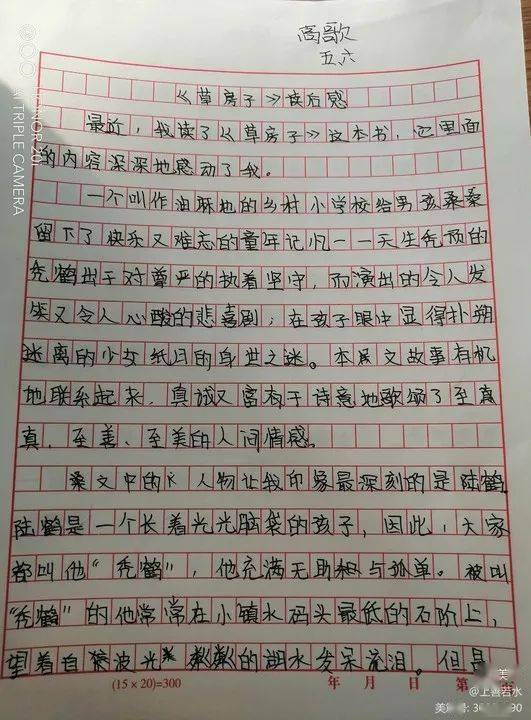 高歌
五六
《草房子》读后感
最近，我读了《草房子》这本书，它里面
的内容深深地感动了我。
一个叫作油麻地的乡村小学校给男孩桑桑
留下了快乐又难忘的童年记忆一一天生秃顶的
秃鹤出于对尊严的执着坚守，而演出的令人发
笑又令人心酸的悲喜剧；在孩子眼中显得扑朔
迷离的少女纸月的身世之迷。本文故事有机
地联系起来，真诚又富有于诗意地歌颂了至真
真、至善、至美的人间情感。
文中的人物让我印象最深刻的是陆鹤
陆鹤是一个长着光光脑袋的孩子，因此，大家
都叫他“秃鹤”，他充满无助与孤单。被叫
“秃鹤”的他常常在小镇水码头最低的石阶上，
望着自波光粼粼的湖水发呆流泪。但是
(15×20)=300 年 月 日 第
HONOR 20i
AI TRIPLE CAMERA
@上善若水